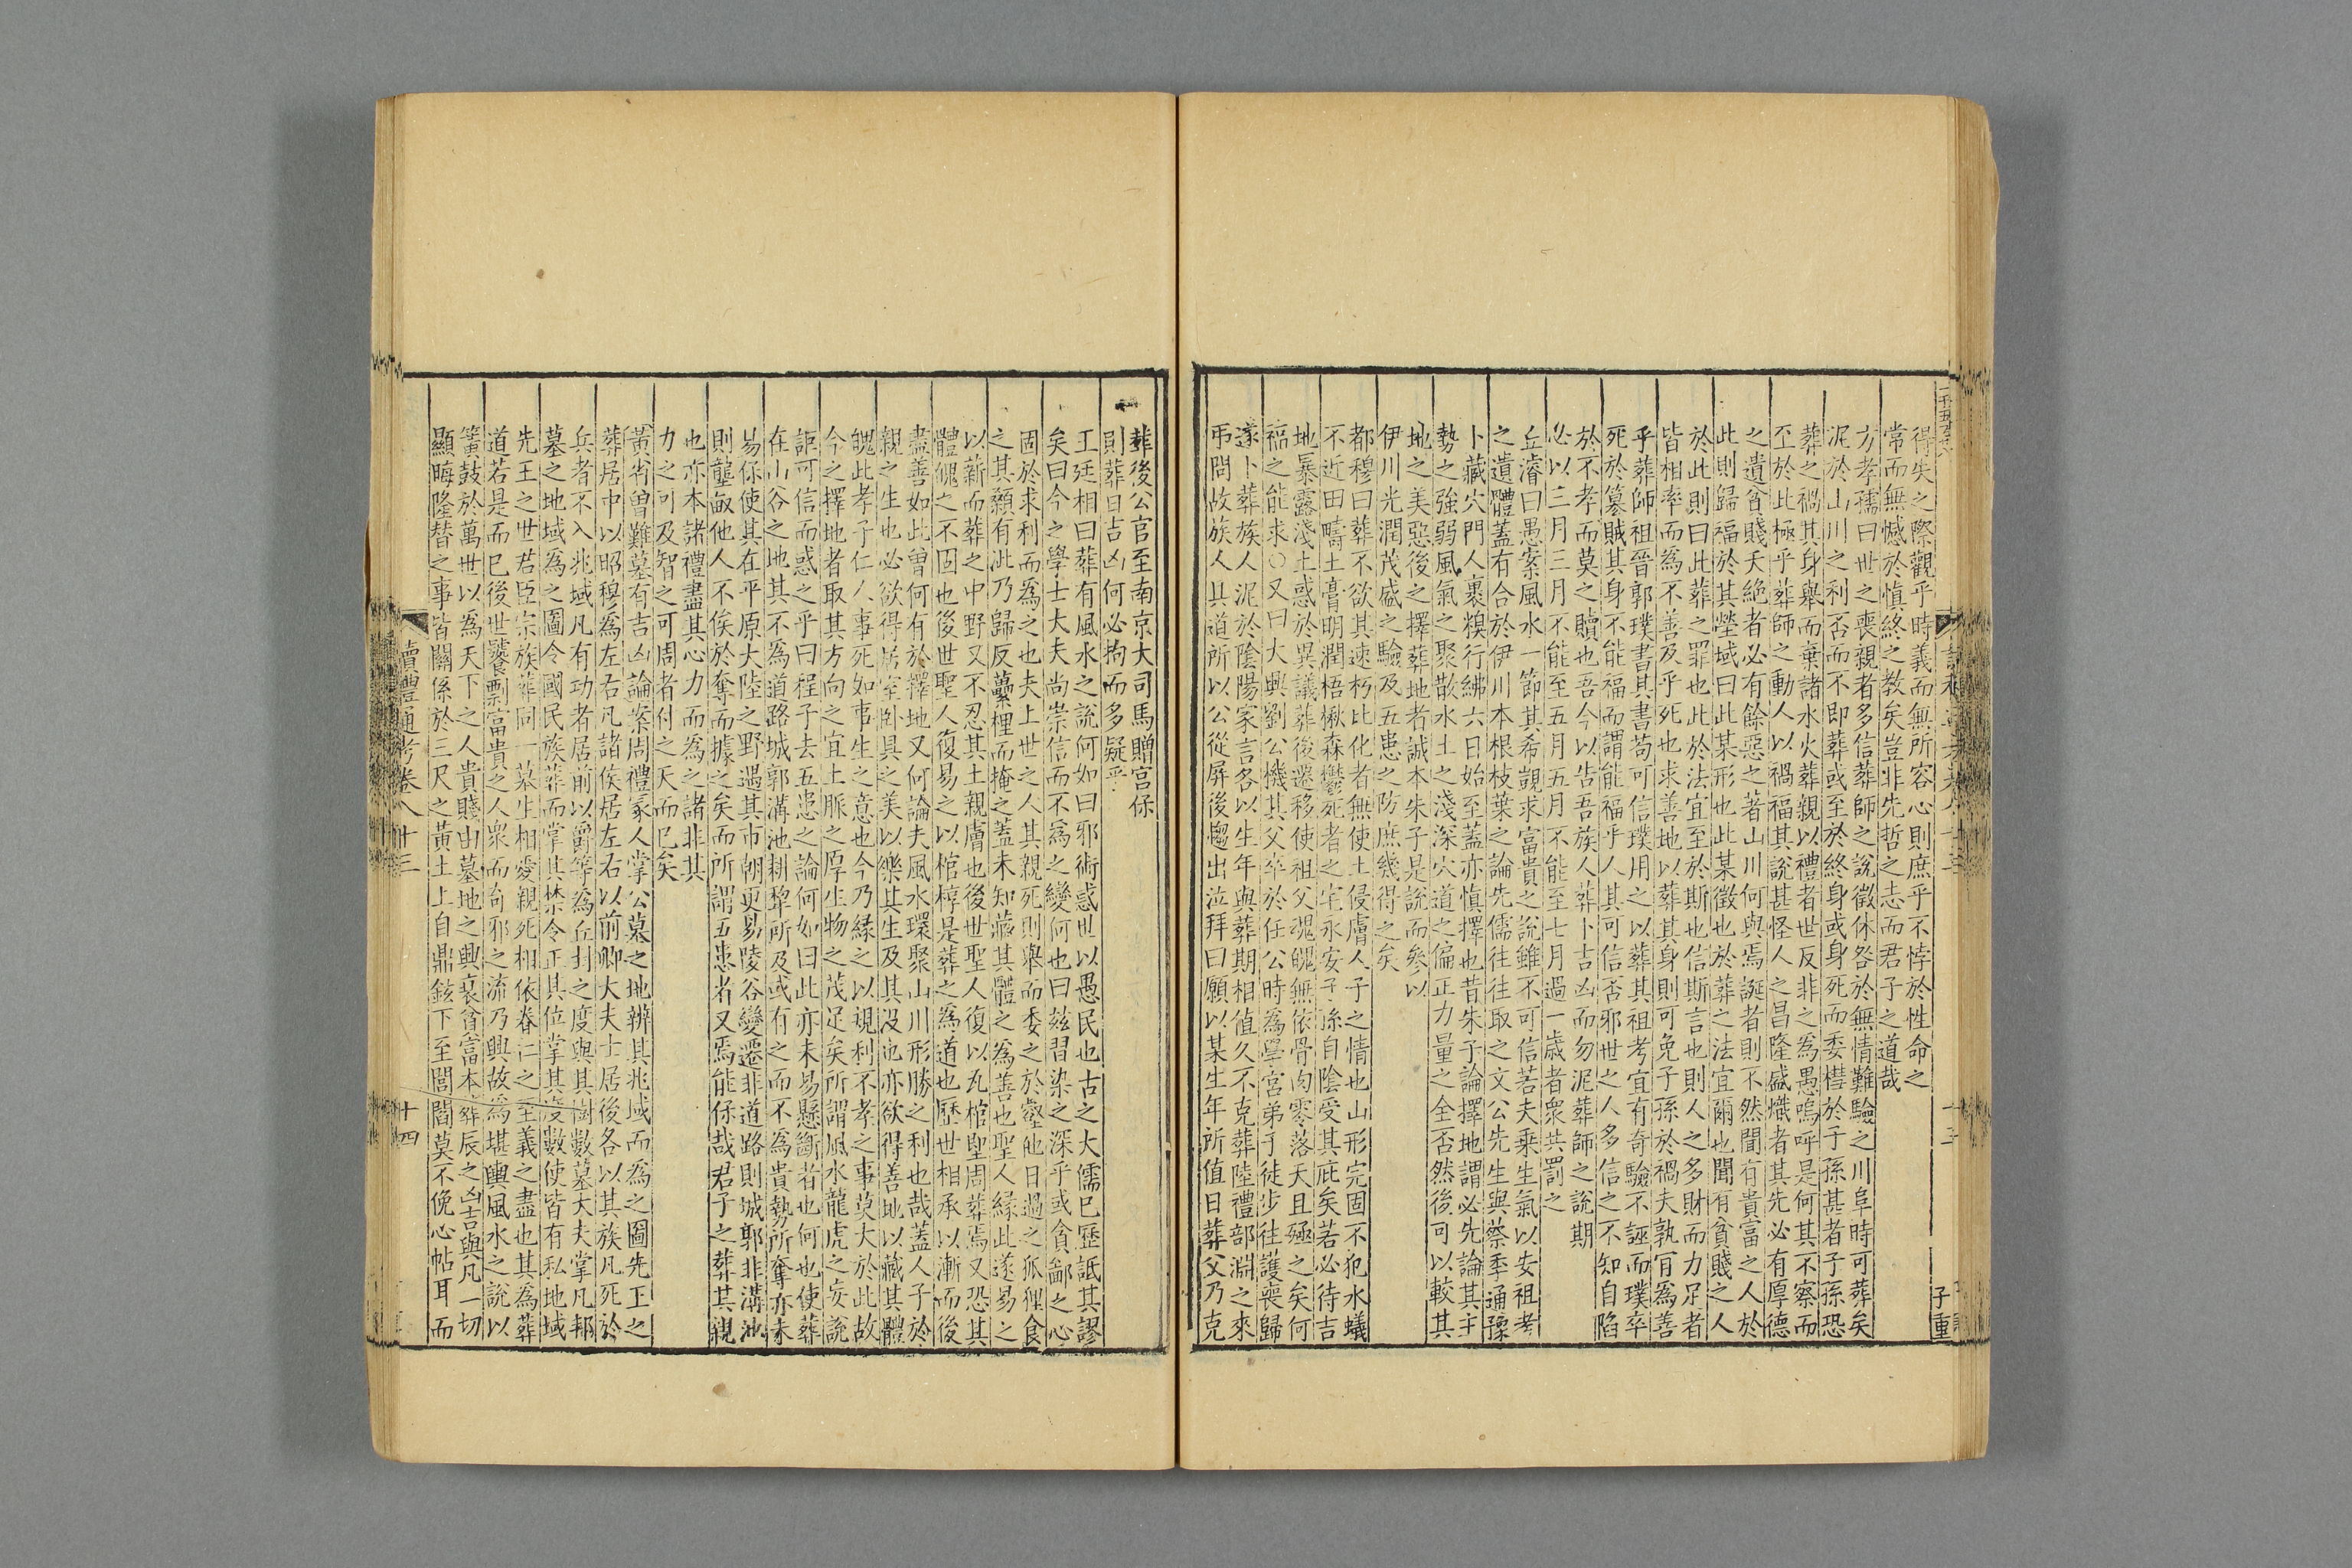 得失之際觀乎時義而無所容心則庶乎不悖於性命之
常而無憾於慎終之教矣豈非先哲之志而君子之道哉
方孝孺曰世之喪親者多信葬師之說徵休咎於無情難驗之川阜時可葬矣
泥於山川之利否而不即葬或至於終身或身死而委櫘於子孫甚者子孫恐
葬之禍其身舉而棄諸水火葬親以禮者世反非之為愚嗚呼是何其不察而
至於此極乎葬師之動人以禍福其說甚怪人之昌隆盛熾者其先必有厚德
之遺貧賤夭絶者必有餘惡之著山川何與焉誕者則不然聞有貴富之人於
此則歸福於其塋域曰此某形也此某徵也於葬之法宜爾也聞有貧賤之人
於此則曰此葬之罪也此於法宜至於斯也信斯言也則人之多財而力足者
皆相率而為不善及乎死也求善地以葬其身則可免子孫於禍夫孰肯為善
乎葬師祖晉郭璞書其書苟可信璞用之以葬其祖考宜有奇驗不誣而璞卒
死於簒賊其身不能福而謂能福乎人其可信否邪世之人多信之不知自陷
於不孝而莫之贖也吾今以告吾族人葬卜吉凶而勿泥葬師之說期
必以三月三月不能至五月五月不能至七月過一歲者衆共罰之
丘濬曰愚案風水一節其希覬求富貴之說雖不可信若夫乗生氣以安祖考
之遺體蓋有合於伊川本根枝葉之論先儒往往取之文公先生與蔡季通豫
卜藏穴門人裹糗行紼六日始至蓋亦慎擇也昔朱子論擇地謂必先論其主
勢之強弱風氣之聚散水土之淺深穴道之偏正力量之全否然後可以較其
地之美惡後之擇葬地者誠本朱子是說而參以
伊川光潤茂盛之驗及五患之防庶幾得之矣
都穆曰葬不欲其速朽比化者無使土侵膚人子之情也山形完固不犯水蟻
不近田疇土膏明潤梧楸森鬱死者之宅永安子孫自陰受其庇矣若必待吉
地暴露淺土惑於異議葬後遷移使祖父魂魄無依骨肉零落天且殛之矣何
福之能求○又曰大興劉公機其父卒於任公時為學宫弟子徒步往護喪歸
遂卜葬族人泥於陰陽家言各以生年與葬期相值久不克葬陸禮部淵之來
弔問故族人具道所以公從屏後趨出泣拜曰願以某生年所值日葬父乃克
葬後公官至南京大司馬贈宫保
則葬日吉凶何必拘而多疑乎
王廷相曰葬有風水之說何如曰邪術惑世以愚民也古之大儒巳歷詆其謬
矣曰今之學士大夫尚崇信而不為之變何也曰兹習染之深乎或貪鄙之心
固於求利而為之也夫上世之人其親死則舉而委之於壑他日過之狐狸食
之其顙有泚乃歸反虆梩而掩之蓋未知藏其體之為善也聖人緣此遂易之
以薪而葬之中野又不忍其土親膚也後世聖人復以瓦棺堲周葬焉又恐其
體魄之不固也後世聖人復易之以棺椁是葬之為道也歷世相承以漸而後
盡善如此曽何有於擇地又何論夫風水環聚山川形勝之利也哉蓋人子於
親之生也必欲得居室器具之美以樂其生及其没也亦欲得善地以藏其體
魄此孝子仁人事死如事生之意也今乃緣之以覬利不孝之事莫大於此故
今之擇地者取其方向之宜土脈之厚生物之茂足矣所謂風水龍虎之妄說
詎可信而惑之乎曰程子去五患之論何如曰此亦未易懸斷者也何也使葬
在山谷之地其不為道路城郭溝池耕犂所及或有之而不為貴勢所奪亦未
易保使其在平原大陸之野遇其市朝更易陵谷變遷非道路則城郭非溝池
則壟畝他人不俟於奪而據之矣而所謂五患者又焉能保哉君子之葬其親
也亦本諸禮盡其心力而為之諸非其
力之可及智之可周者付之天而巳矣
黃省曽難墓有吉凶論案周禮冢人掌公墓之地辨其兆域而為之圖先王之
葬居中以昭穆為左右凡諸侯居左右以前卿大夫士居後各以其族凡死於
兵者不入兆域凡有功者居前以爵等為丘封之度與其樹數墓大夫掌凡邦
墓之地域為之圖令國民族葬而掌其禁令正其位掌其度數使皆有私地域
先王之世君臣宗族葬同一墓生相愛親死相依眷仁之至義之盡也其為葬
道若是而巳後世饕票富貴之人衆而奇邪之流乃興故為堪輿風水之說以
簧鼓於萬世以為天下之人貴賤由墓地之興衰貧富本葬辰之凶吉與凡一切
顯晦隆替之事皆關係於三尺之黃土上自鼎鉉下至閭閻莫不俛心帖耳而
讀禮通考卷八十三
十四